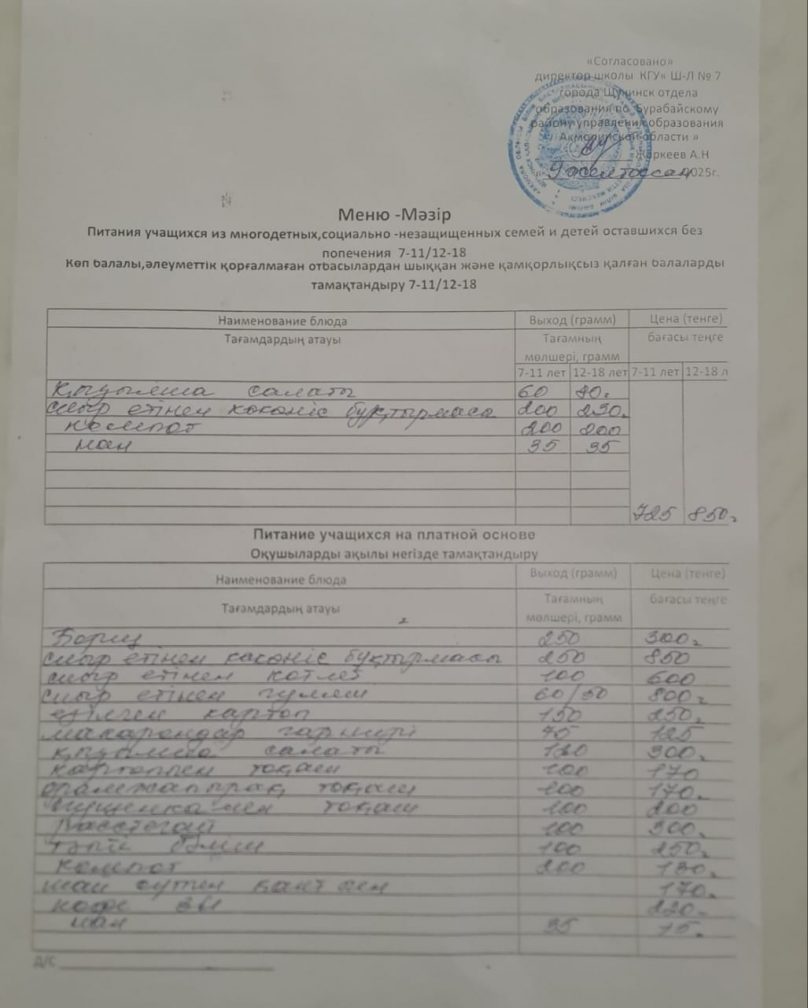 «Согласовано»
директор школы КГУ« Ш-Л № 7
города Щучинск отдела
образования по Бурабайскому
району управления образования
Акмолинской области »
Жаркеев А.Н
2025г.
Меню -Мәзір
Питания учащихся из многодетных,социально -незащищенных семей и детей оставшихся без
попечения 7-11/12-18
Көп балалы,әлеуметтік қорғалмаған отбасылардан шыққан және қамқорлықсыз қалған балаларды
тамақтандыру 7-11/12-18
Наименование блюда Выход (грамм) Цена (тенге)
Тағамдардың атауы Тағамның мөлшері, грамм бағасы теңге
7-11 лет 12-18 лет 7-11 лет 12-18 л
салаты 60
сиыр етінен көкөніс бұқтырмасы 200 250.
компот 200 200
нан 35 35
725 850.
Питание учащихся на платной основе
Оқушыларды ақылы негізде тамақтандыру
Наименование блюда Выход (грамм) Цена (тенге)
Тағамдардың атауы Тағамның мөлшері, грамм бағасы теңге
Борщ 250 300.
сиыр етінен көкөніс бұқтырмасы 250 850
сиыр етінен котлет 100 600
сиыр етінен гуляш 60/50 800.
езілген картоп 150 250.
макарондар гарнирі 125
салаты 300.
картоппен тоқаш 100 170
орамжапырақ тоқаш 100 170.
тоқаш 100 200
Расстегай 100 300.
бәліш 100 250.
компот 200 130.
шай сүтпен қантпен 170.
кофе 3в1 220.
нан 35 15.
Д/С